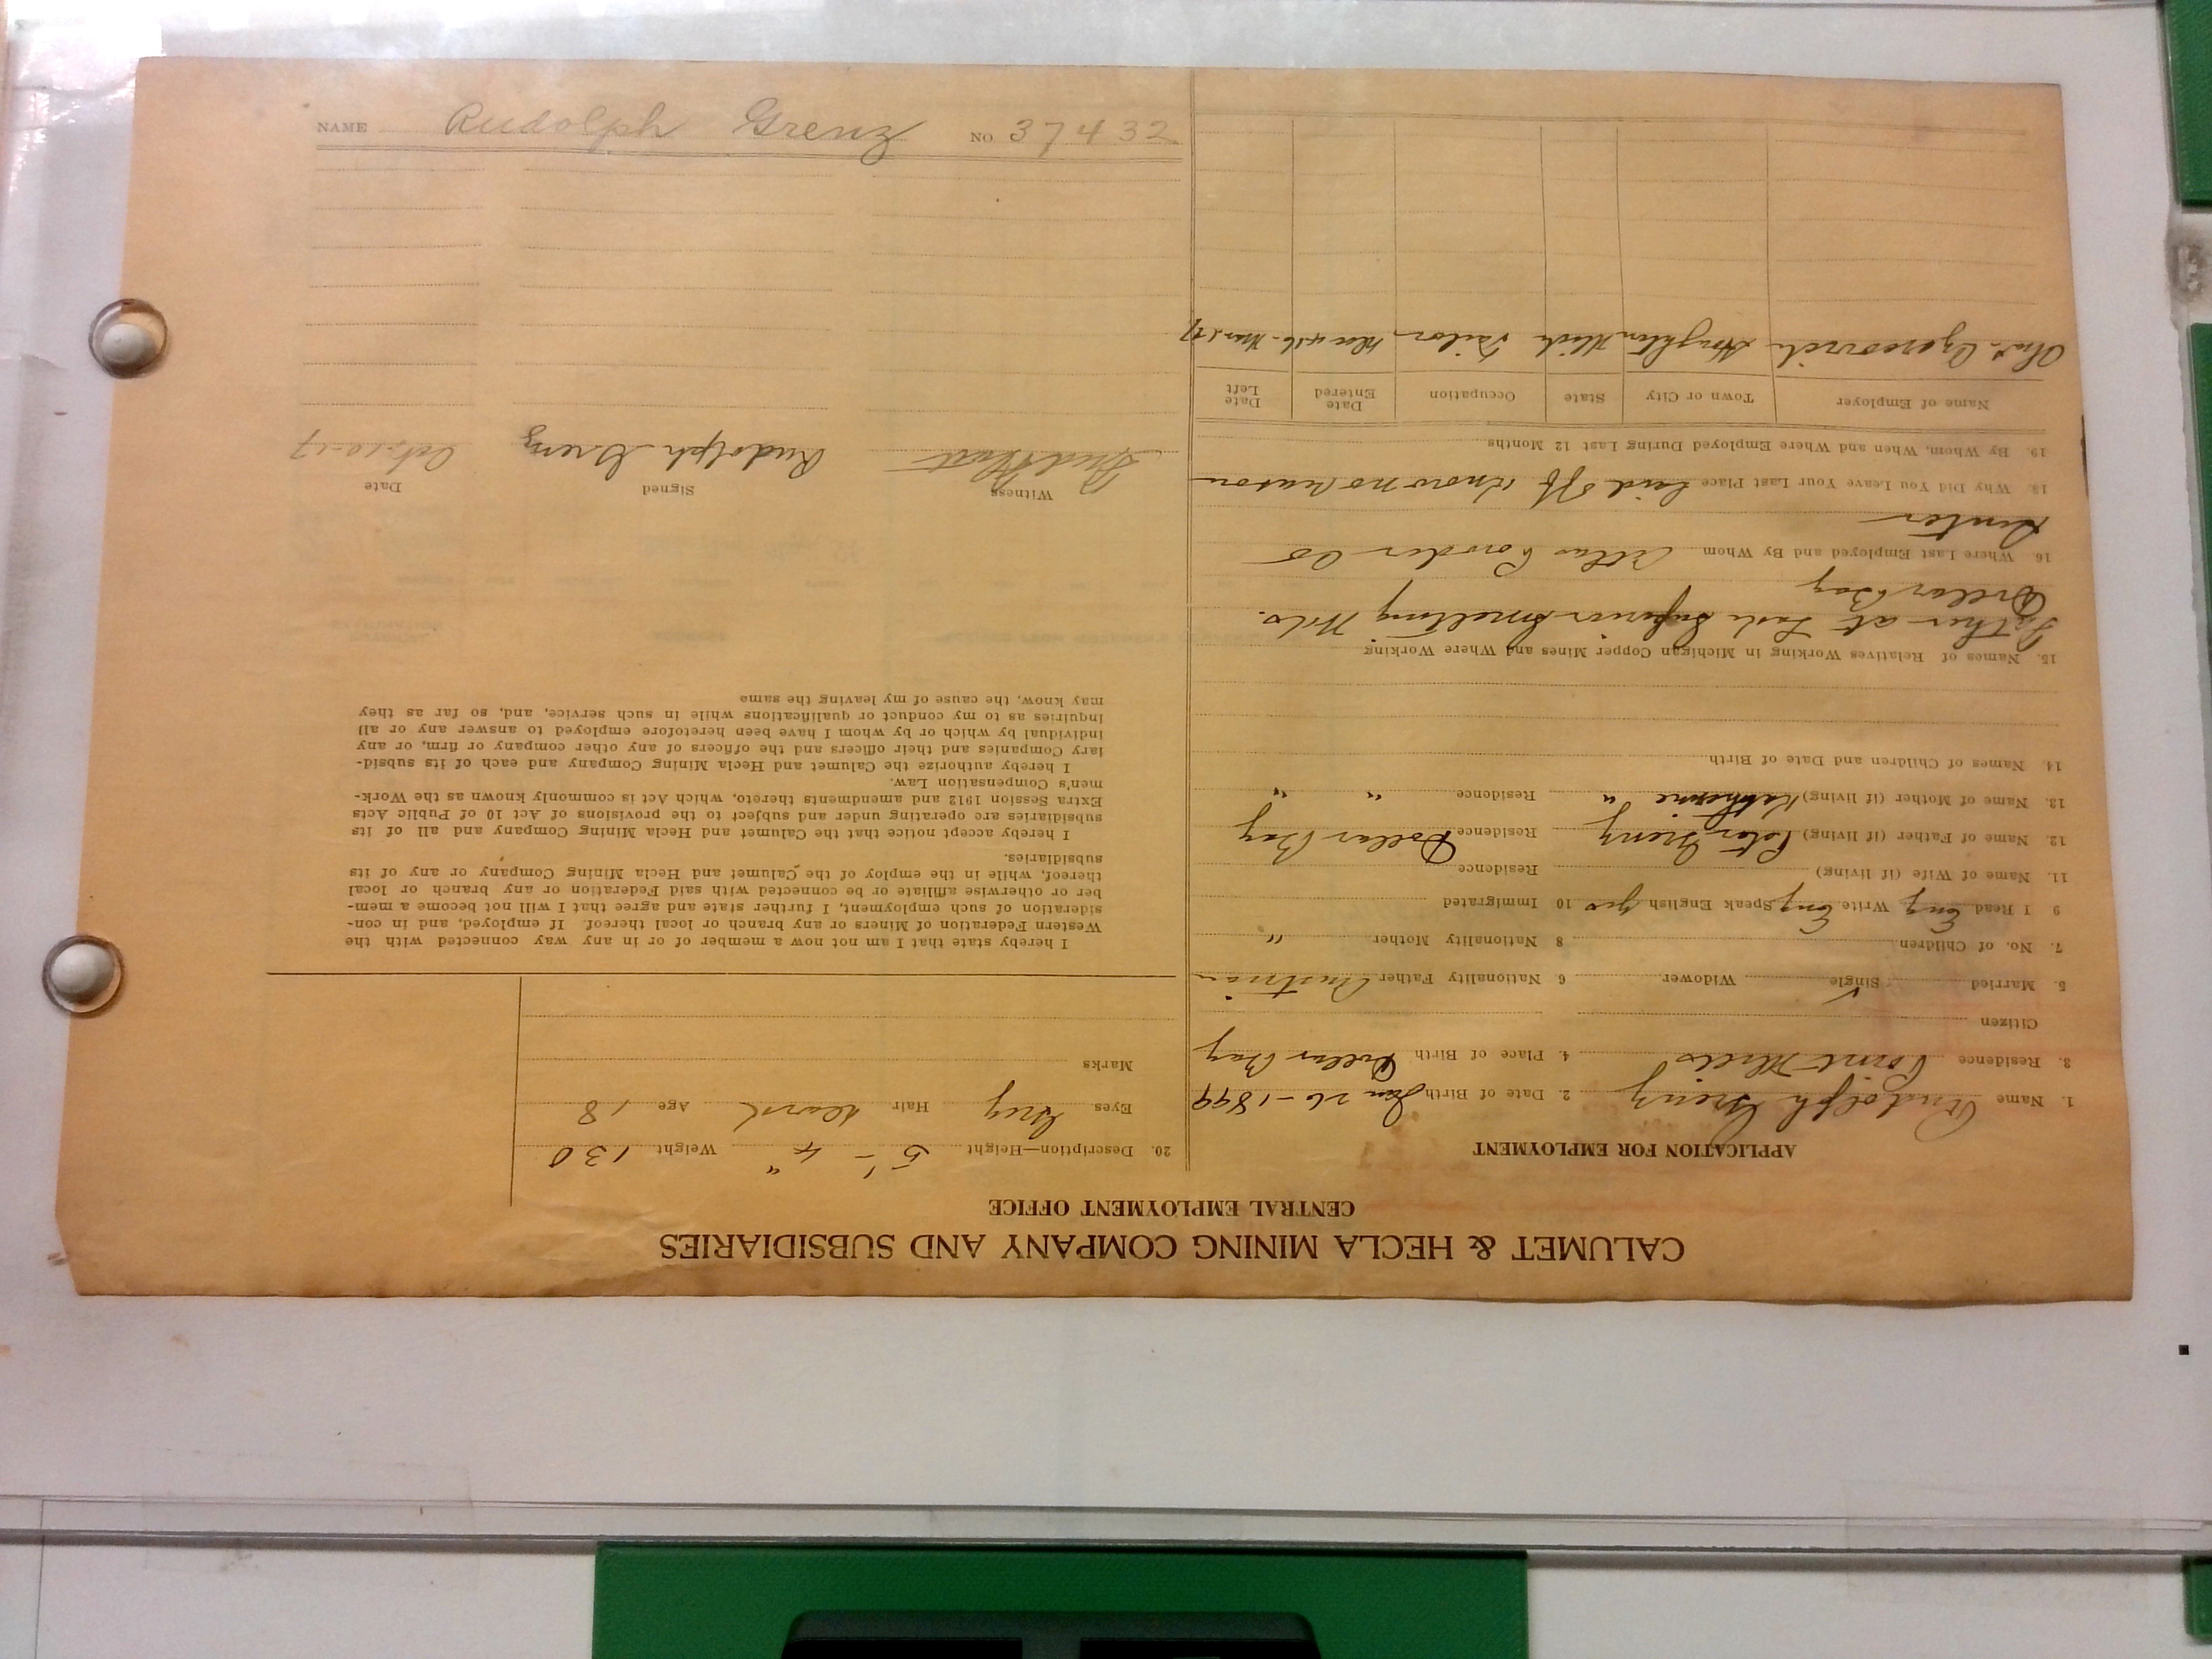 CALUMET & HECLA MINING COMPANY AND SUBSIDIARIES
CENTRAL EMPLOYMENT OFFICE
APPLICATION FOR EMPLOYMENT
1. Name Rudolph Grenz 2. Date of Birth Jan 26-1899
3. Residence Point Mills 4. Place of Birth Dollar Bay
Citizen
5. Married Single ✓ Widower 6 Nationality Father Austrian
7. No. of Children 8 Nationality Mother "
9 I Read Eng Write Eng Speak English yes 10 Immigrated
11. Name of Wife (if living) Residence
12. Name of Father (if living) Peter Grenz Residence Dollar Bay
13. Name of Mother (if living) Katherine " Residence " "
14. Names of Children and Date of Birth
15. Names of Relatives Working in Michigan Copper Mines and Where Working
Father at Lake Superior Smelting Wks.
Dollar Bay
16. Where Last Employed and By Whom Atlas Powder Co
Senter
18. Why Did You Leave Your Last Place Laid off Know no reason
19. By Whom, When and Where Employed During Last 12 Months
Name of Employer Town or City State Occupation Date Entered Date Left
Houghton Mich Tailor
20. Description—Height 5' - 4" Weight 130
Eyes Grey Hair Age 18
Marks
I hereby state that I am not now a member of or in any way connected with the
Western Federation of Miners or any branch or local thereof. If employed, and in con-
sideration of such employment, I further state and agree that I will not become a mem-
ber or otherwise affiliate or be connected with said Federation or any branch or local
thereof, while in the employ of the Calumet and Hecla Mining Company or any of its
subsidiaries.
I hereby accept notice that the Calumet and Hecla Mining Company and all of its
subsidiaries are operating under and subject to the provisions of Act 10 of Public Acts
Extra Session 1912 and amendments thereto, which Act is commonly known as the Work-
men's Compensation Law.
I hereby authorize the Calumet and Hecla Mining Company and each of its subsid-
iary Companies and their officers and the officers of any other company or firm, or any
individual by which or by whom I have been heretofore employed to answer any or all
inquiries as to my conduct or qualifications while in such service, and, so far as they
may know, the cause of my leaving the same
Witness Signed Date
Rudolph Grenz Oct-10-17
NAME Rudolph Grenz NO 37432